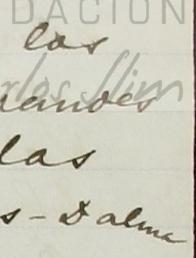 DACIÓN
los
Carlos Slim
randes
las
s - D alma